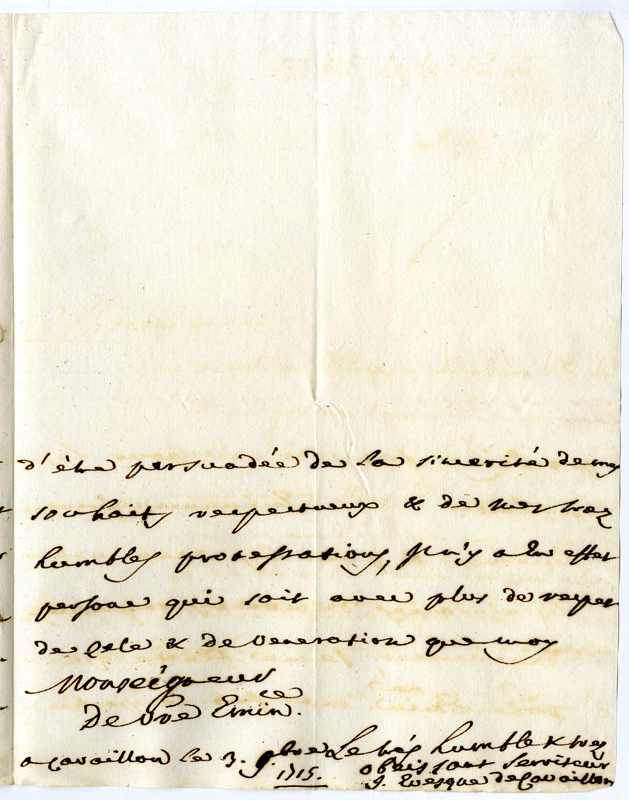 d'être persuadée de la sincerité de mes
souhaits respectueux & de mes trez
humbles protestations, il n'y a en effet
persone qui soit avec plus de respet
de zele & de veneration que moy
Monseigneur
De vre Emin.ce
a cavaillon le 3. 9bre Le trés humble & trez
1715. obeissant serviteur
J. evesque de Cavaillon